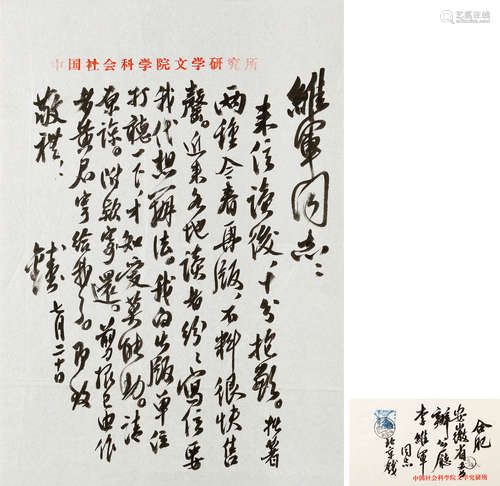 中国社会科学院文学研究所
維軍同志：
来信读後，十分抱歉。拙著
两種今春再版，不料很快售
罄。近来各地读者纷々写信要
我代想辦法。我向出版单位
打聽一下，才知爱莫能助。请
原諒。附款寄還。剪报已由作
者黄君寄给我了。即致
敬禮！
钱
七月二十日
合肥
安徽省委
辦公廳
李維軍同志
北京钱
中国社会科学院文学研究所